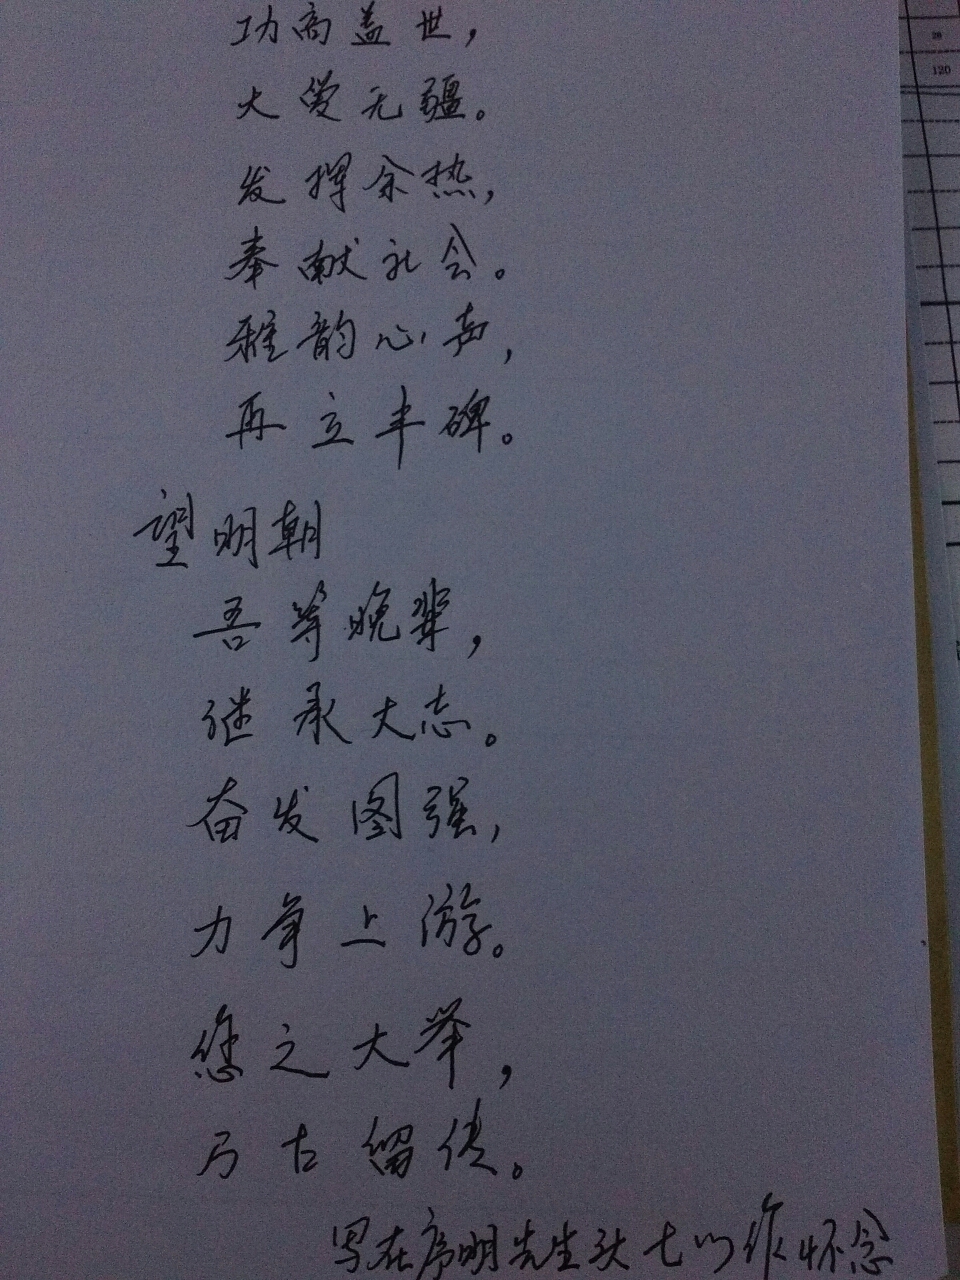 功高盖世，
大爱无疆。
发挥余热，
奉献社会。
雅韵心声，
再立丰碑。
望明朝
吾等晚辈，
继承大志。
奋发图强，
力争上游。
您之大举，
万古留传。
写在序明先生头七以作怀念
28
120